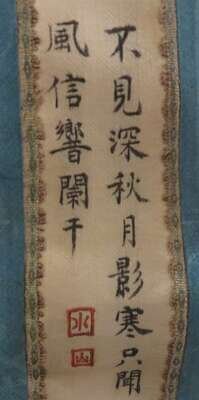 不見深秋月影寒只聞
風信響闌干
水
山